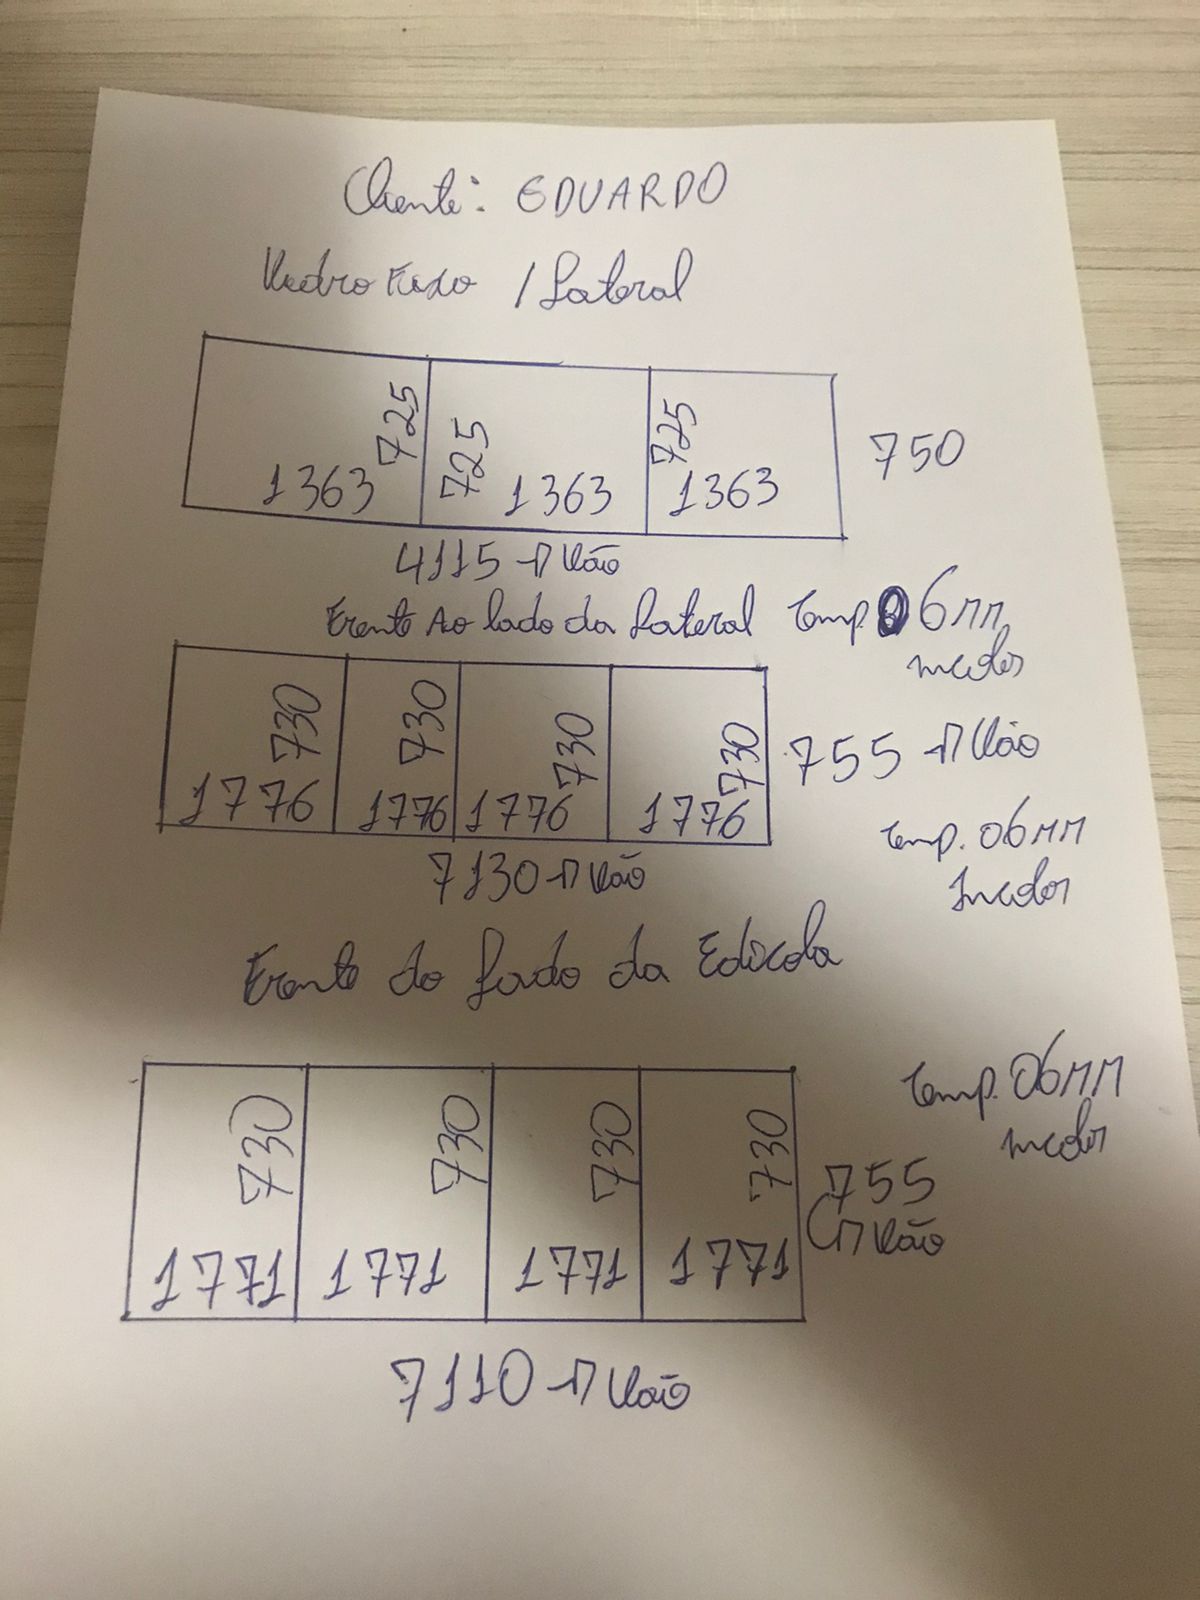 Cliente: EDUARDO
Vidro Fixo / Lateral
725 725 725
1363 1363 1363 750
4115 → Vão
Frente Ao lado da Lateral Temp. 06MM
incolor
730 730 730 730
1776 1776 1776 1776 755 → Vão
7130 → Vão
Temp. 06MM
Incolor
Frente do Lado da Edicola
Temp. 06MM
incolor
730 730 730 730
755
→ Vão
1771 1771 1771 1771
7110 → Vão